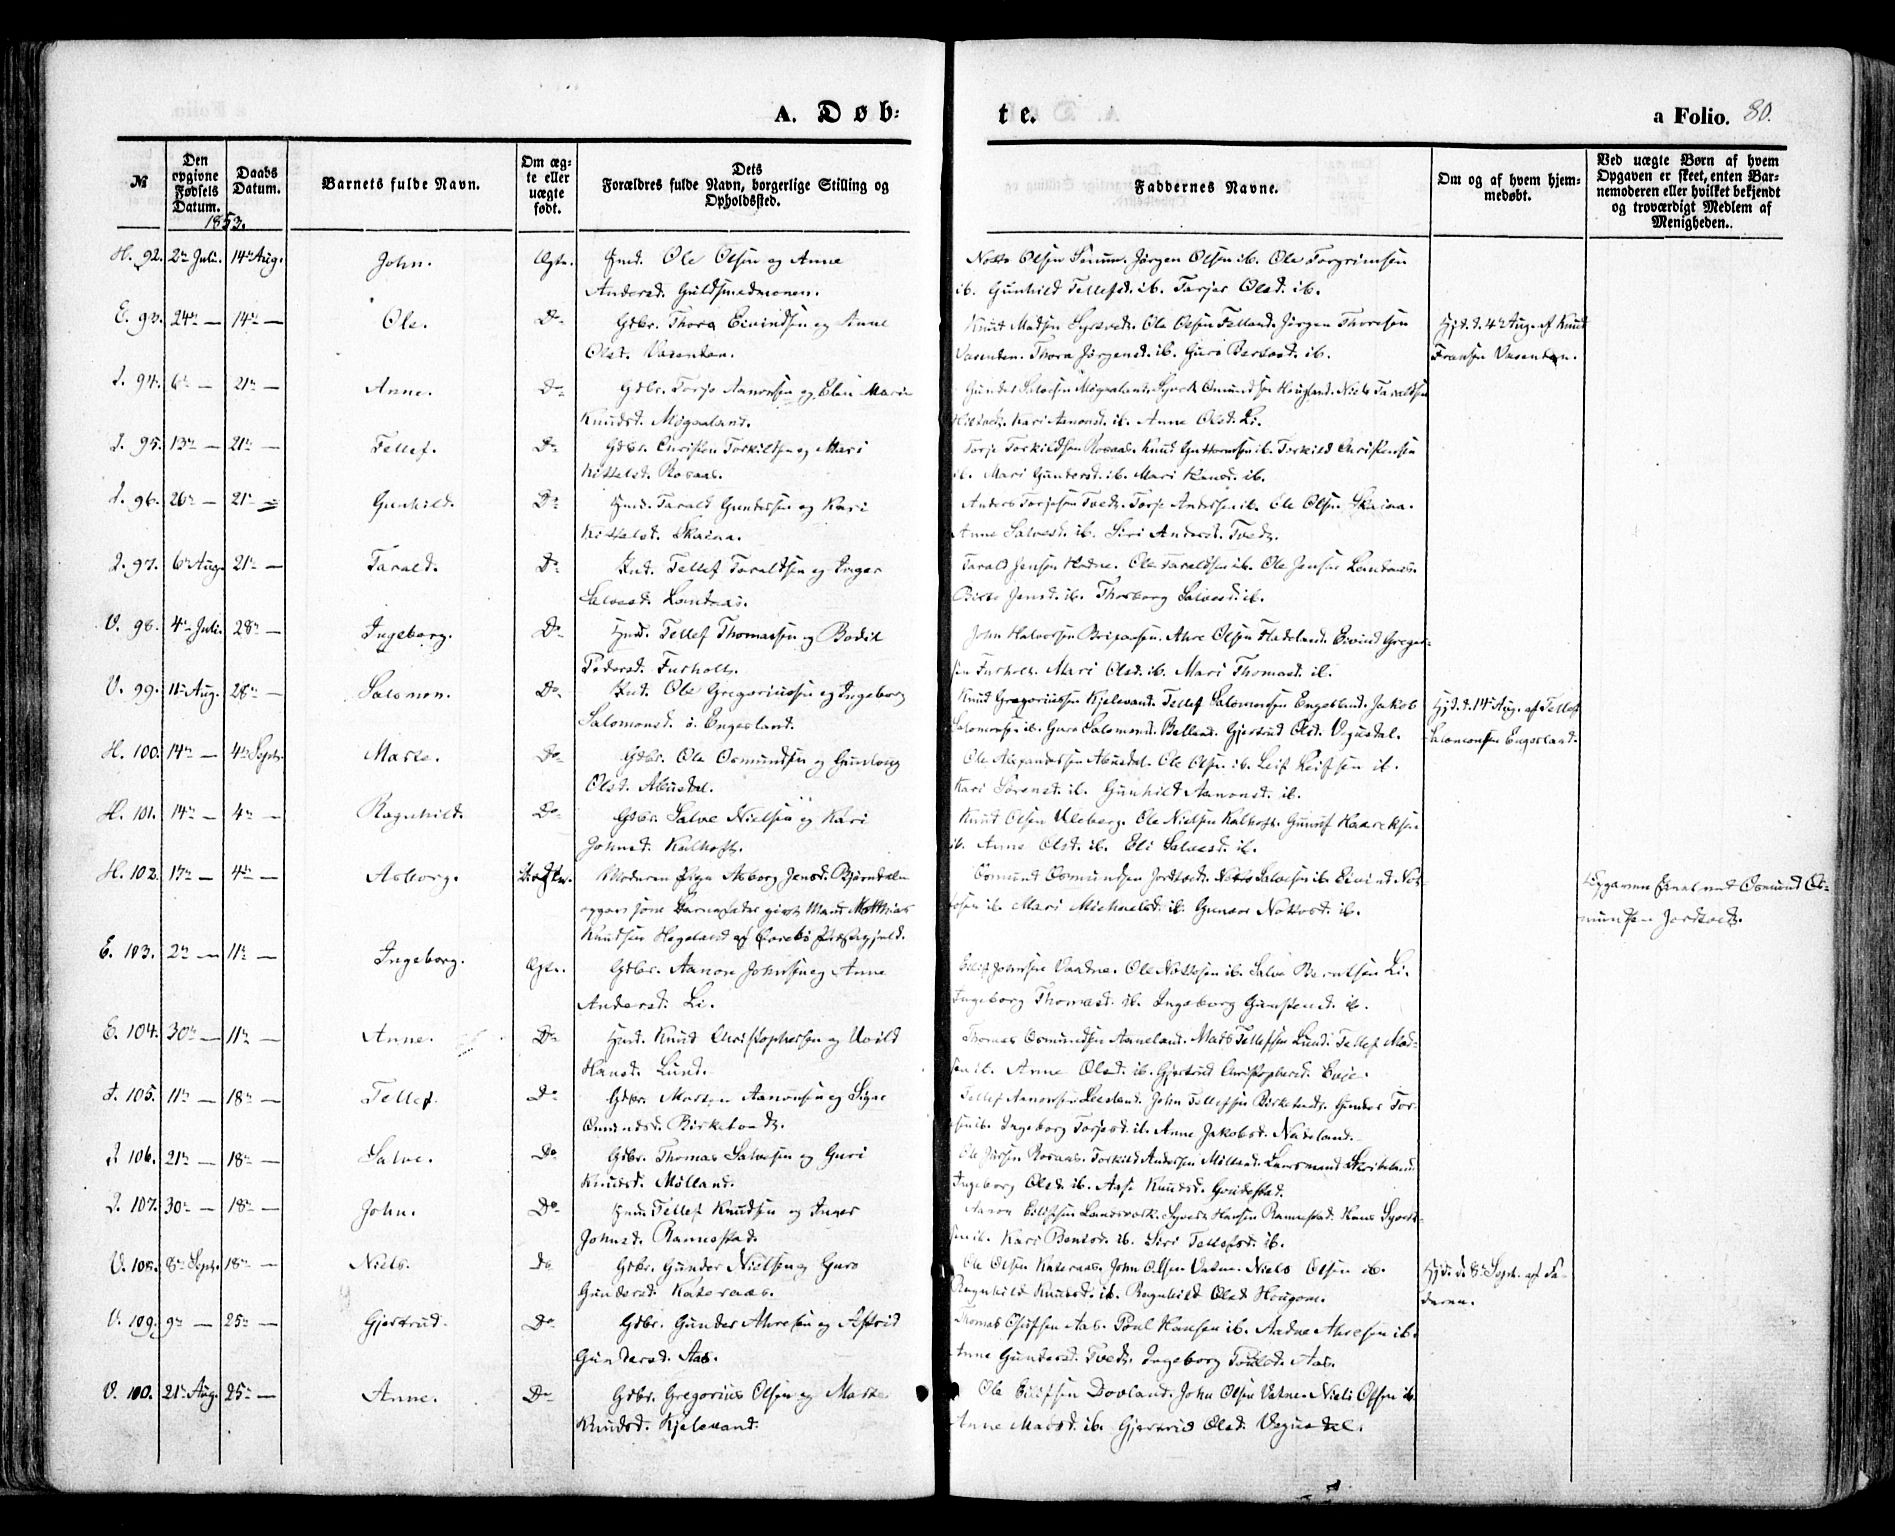 A. Døb:
te.
a Folio. 80.
№
Den opgivne Fødsels Datum.
Daabs Datum.
1853.
Barnets fulde Navn.
Om ægte eller uægte født.
Dets Forældres fulde Navn, borgerlige Stilling og Opholdssted.
Faddernes Navne.
Om og af hvem hjemmedøbt.
Ved uægte Børn af hvem Opgaven er skeet, enten Barnemoderen eller hvilket bekjendt og troværdigt Medlem af Menigheden.
H. 92. 2den Juli. 14de Aug. John. Ægte. Hmd. Ole Olsen og Anne
Andersd. Guldsmedmonen.
Notto Olsen Senum. Jörgen Olsen ib. Ole Torgrimsen
ib. Gunhild Tellefsd. ib. Torjer Olsd. ib.
E. 93. 24de — 14de — Ole. Do Gdbr. Thore Eivindsen og Anne
Olsd. Vasenden.
Knud Madsen Syrtved. Ole Olsen Felland. Jörgen Thoresen
Vasenden. Thora Jörgensd. ib. Guri Bersvsd. ib.
Hjd. d. 4de Aug. af Knud
Fransen Vasenden.
I. 94. 6te — 21de — Anne. Do Gdbr. Torje Aanonsen og Elen Marie
Knudsd. Mögaaland.
Kari Aanonsd. ib. Anne Olsd. Li.
I. 95. 13de — 21de — Tellef. Do Gdbr. Christen Torkildsen og Mari
Kittelsd. Rosaas.
Torje Torkildsen Rosaas. Knud Guttormsen ib. Torkild Christensen
ib. Mari Gundersd. ib. Mari Knudsd. ib.
I. 96. 26de — 21de — Gunhild. Do Hmd. Tarald Gundersen og Kari
Kittelsd. Skaiaa.
Anders Torjesen Tvedt. Torje Andersen ib. Ole Olsen Skaiaa.
Anne Salvesd. ib. Siri Andersd. Tvedt.
I. 97. 6te Aug. 21de — Tarald. Do Ind. Tellef Taraldsen og Inger
Salvesd. Landaas.
Tarald Jensen Hodne. Ole Taraldsen ib. Ole Jensen Landaas.
Birte Jensd. ib. Thorborg Salvesd. ib.
V. 98. 4de Juli. 28de — Ingeborg. Do Hmd. Tellef Thomassen og Bodil
Pedersd. Furholt.
John Halvorsen Ahre Olsen Hadeland. Eivind Gregersen
Furholt. Mari Olsd. ib. Mari Thomasd. ib.
V. 99. 11te Aug. 28de — Salomon. Do Ind. Ole Gregoriussen og Ingeborg
Salomonsd. ö. Engesland.
Knud Gregoriussen Kjelevand. Tellef Salomonsen Engesland. Jakob
Salomonsen ib. Guro Salomonsd. Belland. Gjertrud Olsd. Vegusdal.
Hjd. d. 14de Aug. af Tellef
Salomonsen Engesland.
H. 100. 14de — 4de Septr. Marte. Do Gdbr. Ole Osmundsen og Gunvog
Olsd. Abusdal.
Ole Alexandersen Abusdal. Ole Olsen ib. Leif Leifsen ib.
Kari Sörensd. ib. Gunhild Aanonsd. ib.
H. 101. 14de — 4de — Ragnhild. Do Gdbr. Salve Nielsen og Kari
Johnsd. Kalhoft.
Knud Olsen Uleberg. Ole Nielsen Kalhoft. Gunuf Haareksen
ib. Anne Olsd. ib. Eli Salvesd. ib.
H. 102. 17de — 4de — Asborg. Uægte. Moderen Pige Asborg Jensd. Björndalen
opgav som Barnefader gift Mand Matthias
Knudsen Hegeland af Præstegjeld.
Osmund Osmundsen Jordtvedt. Salvesen ib. Eivind Nottosen
ib. Mari Michaelsd. ib. Gunvor Nottosd. ib.
Osmund Osmundsen
Jordtvedt.
E. 103. 2den — 11te — Ingeborg. Ægte. Gdbr. Aanon Johnsen og Anne
Andersd. Li.
Eilif Johnsen Vaadne. Ole Nottosen ib. Salve Berntsen Li.
Ingeborg Thomasd. ib. Ingeborg Gunstensd. ib.
E. 104. 30te — 11te — Anne. Do Hmd. Knud Christophersen og Uvild
Hansd. Lund.
Thomas Osmundsen Aaneland. Mads Tellefsen Lund. Tellef Madsen
ib. Anne Olsd. ib. Gjertrud Christophersd. Evje.
I. 105. 11te — 18de — Tellef. Do Gdbr. Morten Aanonsen og Signe
Omundsd. Birketvedt.
Tellef Aanonsen Leesland. John Tellefsen Birketvedt. Gunder Torjesen
ib. Ingeborg Torjesd. ib. Anne Jakobsd. Nateland.
I. 106. 21de — 18de — Salve. Do Gdbr. Thomas Salvesen og Guri
Knudsd. Mölland.
Ole Rosaas. Torkild Andersen Mölland. Skribeland.
Ingeborg Olsd. ib. Aase Knudsd. Gridestad.
I. 107. 30te — 18de — John. Do Hmd. Tellef Knudsen og Inger
Johnsd. Rannestad.
Aanon Eilifsen Landsverk. Syvert Hansen Rannestad. Hans Syvertsen
ib. Kari Bentsd. ib. Siri Tellefsd. ib.
V. 108. 8de Septr. 18de — Niels. Do Gdbr. Gunder Nielsen og Guro
Gundersd. Kateraas.
Ole Olsen Kateraas. John Olsen Vatne. Niels Olsen ib.
Ragnhild Knudsd. ib. Ragnhild Olsd. Hougom.
Hjd. d. 8de Septr. af Faderen.
V. 109. 9de — 25de — Gjertrud. Do Gdbr. Gunder Ahresen og Astrid
Gundersd. Aas.
Thomas Osufsen Aas. Poul Hansen ib. Aadne Ahresen ib.
Anne Gundersd. Tvedt. Ingeborg Poulsd. Aas.
V. 110. 21de Aug. 25de — Anne. Do Gdbr. Gregorius Olsen og Marte
Knudsd. Kjelevand.
Ole Eilifsen Dovland. John Olsen Vatne. Niels Olsen ib.
Anne Madsd. ib. Gjertrud Olsd. Vegusdal.